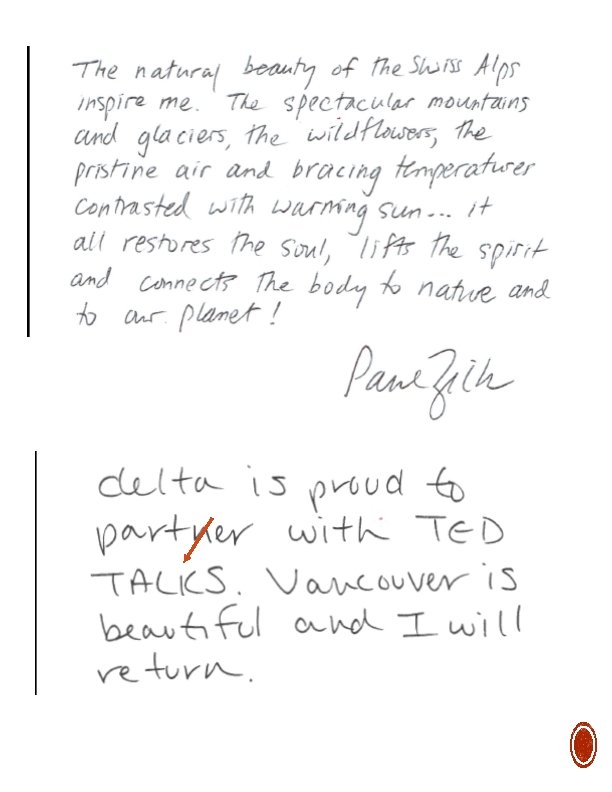 The natural beauty of the Swiss Alps
inspire me. The spectacular mountains
and glaciers, the wildflowers, the
pristine air and bracing temperatures
contrasted with warming sun... it
all restores the soul, lifts the spirit
and connects the body to native and
to our planet!
delta is proud to
partner with TED
TALKS. Vancouver is
beautiful and I will
return.